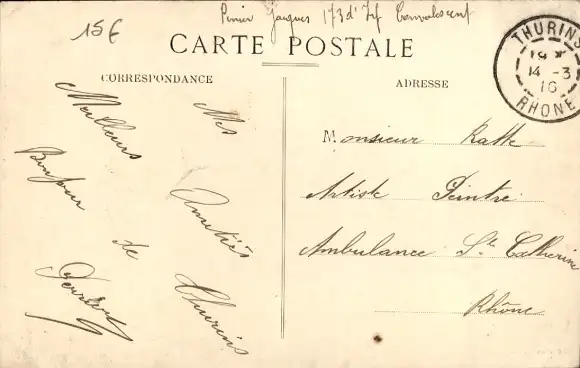 15€
Perrier Jacques 173d' Inf Convalescent
CARTE POSTALE
CORRESPONDANCE
ADRESSE
THURINS
14 - 3
16
RHÔNE
Meilleurs
Bonjour de
Mes
Amitiés
Thurins
Monsieur Ratte
Artiste Peintre
Ambulance Ste Catherine
Rhône